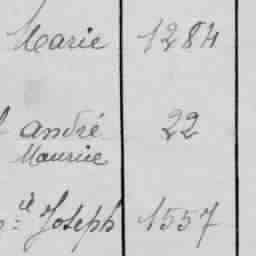 Marie 1284
André 22
Maurice
Joseph 1557